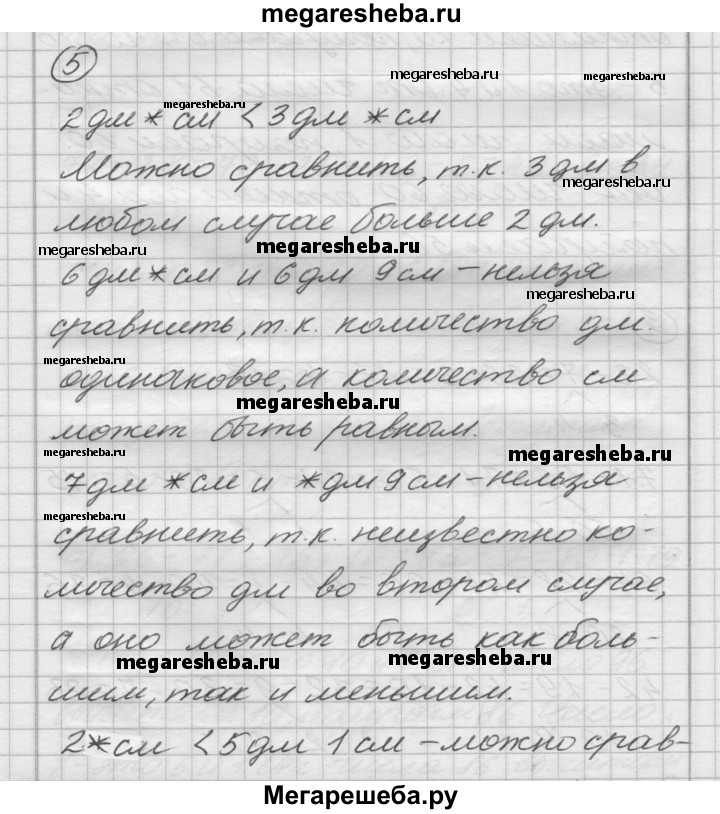 megaresheba.ru
5
megaresheba.ru
megaresheba.ru
2 дм * см < 3 дм * см
Можно сравнить, т.к. 3 дм в
megaresheba.ru
любом случае больше 2 дм.
megaresheba.ru
megaresheba.ru
6 дм * см и 6 дм 9 см – нельзя
megaresheba.ru
сравнить, т.к. количество дм.
megaresheba.ru
одинаковое, а количество см
megaresheba.ru
может быть равным.
megaresheba.ru
megaresheba.ru
7 дм * см и * дм 9 см – нельзя
megaresheba.ru
сравнить, т.к. неизвестно ко-
личество дм во втором случае,
а оно может быть как боль-
megaresheba.ru
megaresheba.ru
шим, так и меньшим.
2* см < 5 дм 1 см – можно срав-
Мегарешеба.ру